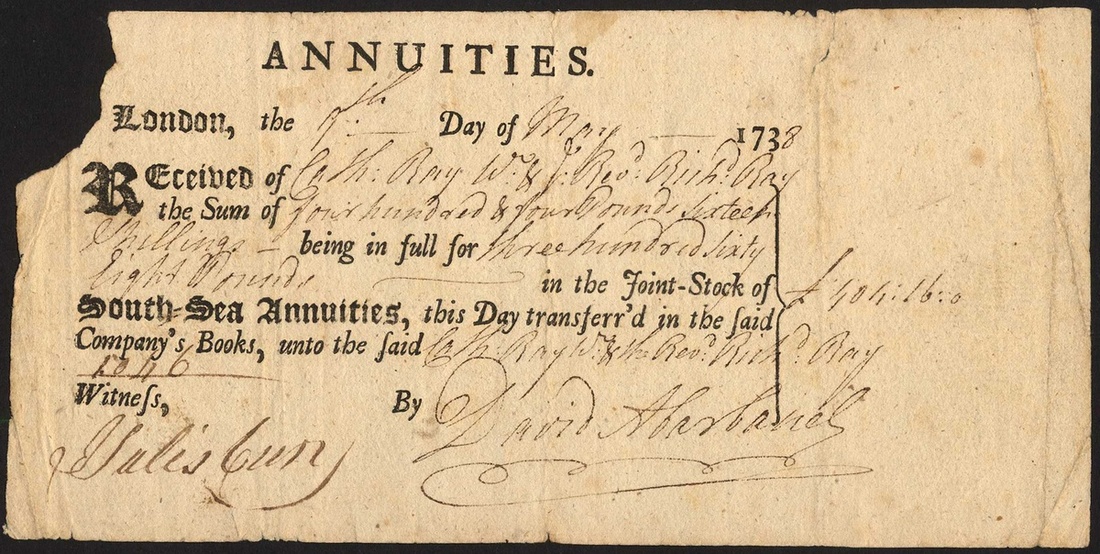 ANNUITIES.
London, the Day of May 1738
REceived of Cath: Ray Wo: & ye Revd. Richd. Ray
the Sum of four hundred & four Pounds sixteen
Shillings being in full for three hundred sixty
Eight Pounds in the Joint-Stock of
South-Sea Annuities, this Day transferr'd in the ſaid £404:16:0
Company's Books, unto the ſaid Cath: Ray Wo: & the Revd. Richd. Ray
Witneſs, By David Abarbanel